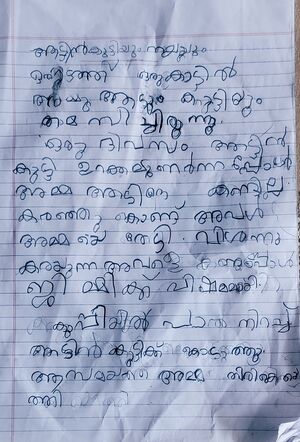 ആട്ടിൻകുട്ടിയും നയ്യയും
ഒരിടത്ത് ഒരു കാട്ടിൽ
അമ്മ ആടും കുട്ടിയും
താമസിച്ചിരുന്നു.
ഒരു ദിവസം ആട്ടിൻ
കുട്ടി ഉറക്കമുണർന്നപ്പോൾ
അമ്മ ആടിനെ കണ്ടില്ല
കരഞ്ഞു കൊണ്ട് അവൾ
അമ്മയെ തേടി. വിശന്നു
കരയുന്ന അവളെ കണ്ടപ്പോൾ
വിഷമമായി.
കുപ്പിയിൽ പാൽ നിറച്ച്
ആട്ടിൻ കുട്ടിക്ക് കൊടുത്തു.
ആ സമയത്ത് അമ്മ തിരികെ
ത്തി